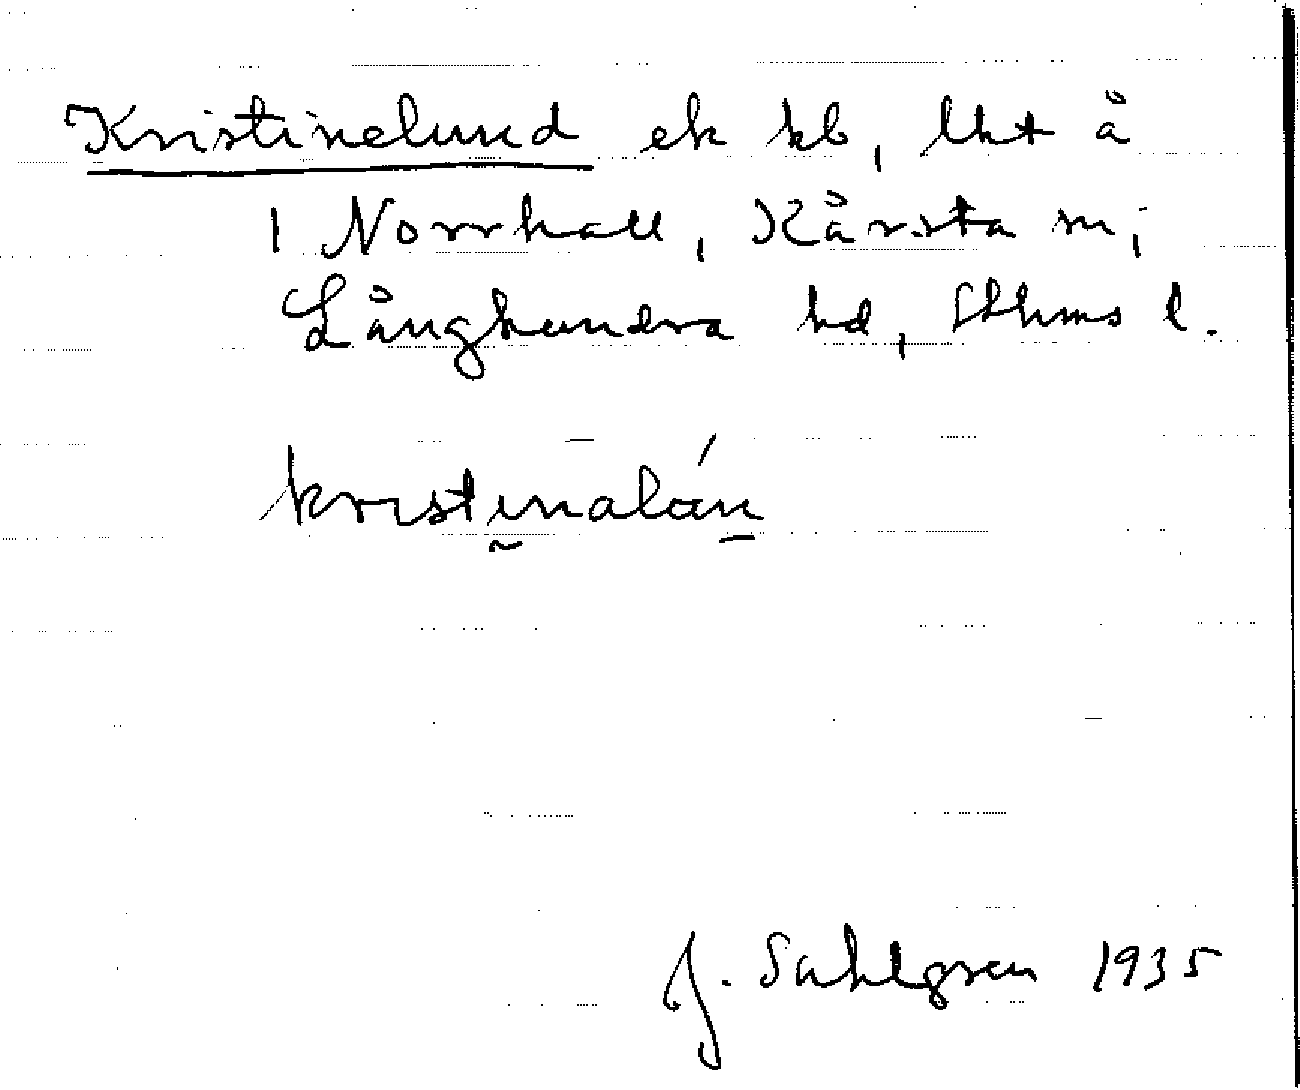 Kristinelund ek kb, lht å
1 Norrhall, Kårsta sn,
Långhundra hd, Sthms l.
kristinalún
J. Sahlgren 1935